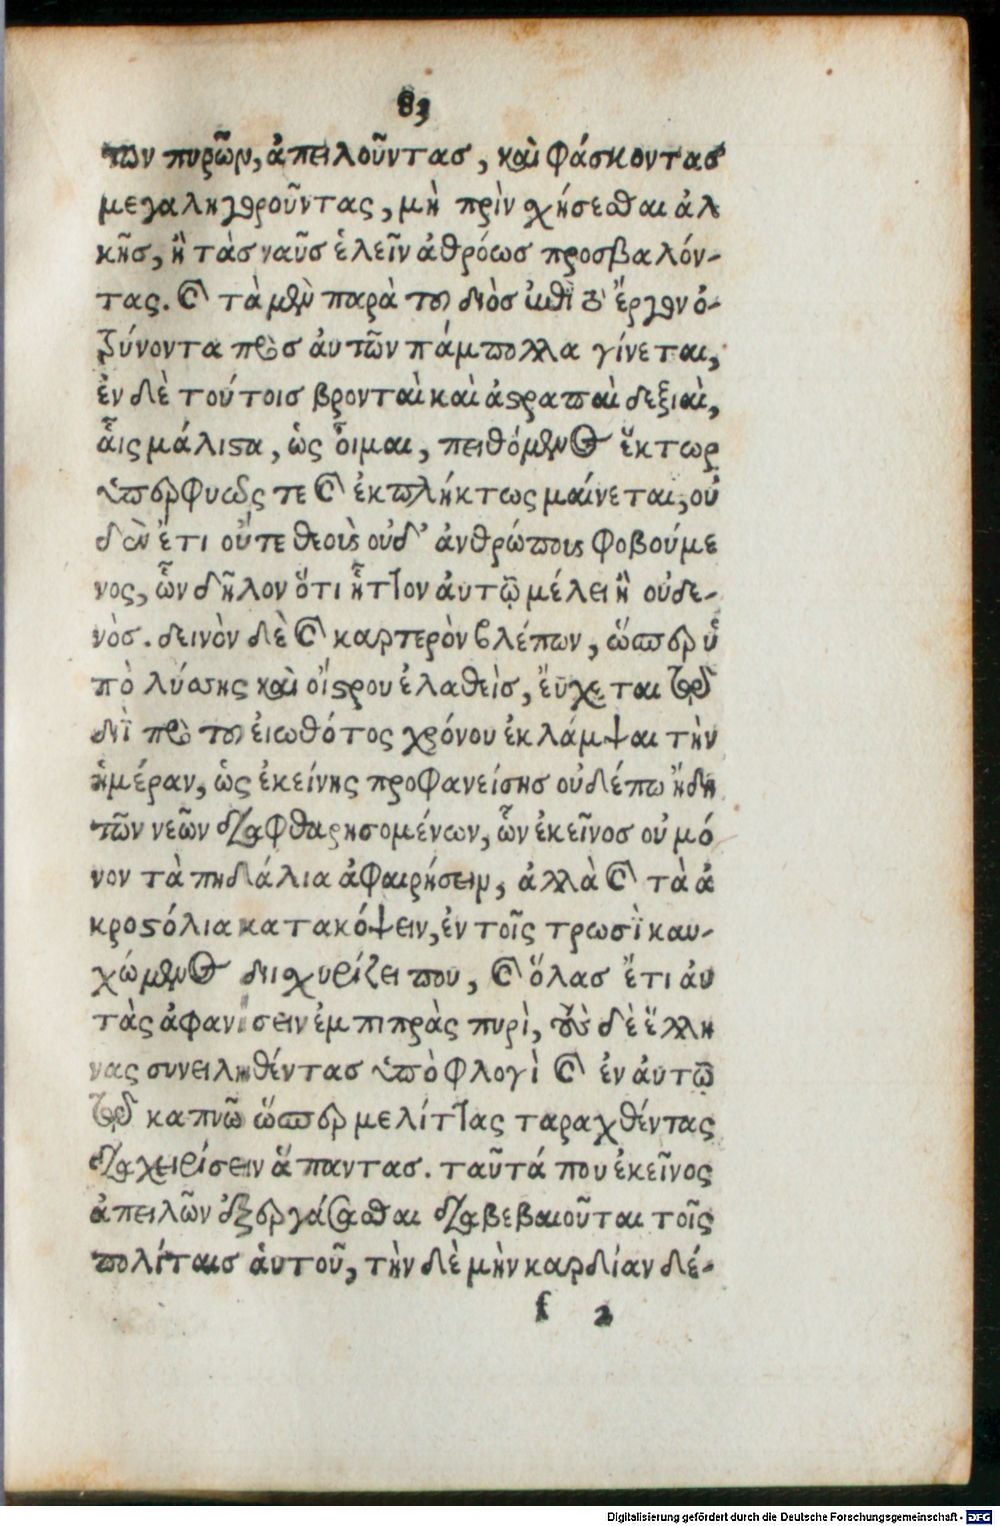 83
των πυρῶν, ἀπειλοῦντας, καὶ φάσκοντας
μεγαληγοροῦντας, μὴ πρὶν χήσεσθαι ἀλ
κῆς, ἢ τὰς ναῦς ἑλεῖν ἀθρόως προσβαλόν-
τας. καὶ τὰ μὲν παρὰ τοῦ διὸς ἐπὶ τὸ ἔργον ὀ-
ξύνοντα πρὸς αὐτῶν πάμπολλα γίνεται,
ἐν δὲ τούτοις βρονταὶ καὶ ἀστραπαὶ δεξιαὶ,
αἷς μάλιστα, ὡς οἶμαι, πειθόμενος ἕκτωρ
ὑπερφυῶς τε καὶ ἐκπλήκτως μαίνεται, οὐ
δὲν ἔτι οὔτε θεοὺς οὐδ' ἀνθρώπους φοβούμε
νος, ὧν δῆλον ὅτι ἧττον αὐτῷ μέλει ἢ οὐδε-
νός. δεινὸν δὲ καὶ καρτερὸν βλέπων, ὥσπερ ὑ
πὸ λύσσης καὶ οἴστρου ἐλαθεὶς, εὔχεται τῷ
διῒ πρὸ τοῦ εἰωθότος χρόνου ἐκλάμψαι τὴν
ἡμέραν, ὡς ἐκείνης προφανείσης οὐδέπω ἤδη
τῶν νεῶν διαφθαρησομένων, ὧν ἐκεῖνος οὐ μό
νον τὰ πηδάλια ἀφαιρήσειν, ἀλλὰ καὶ τὰ ἀ
κροστόλια κατακόψειν, ἐν τοῖς τρωσὶ καυ-
χώμενος διισχυρίζει που, καὶ ὅλας ἔτι αὐ
τὰς ἀφανίσειν ἐμπιπρὰς πυρὶ, τοὺς δὲ ἕλλη
νας συνειληθέντας ὑπὸ φλογὶ καὶ ἐν αὐτῷ
τῷ καπνῷ ὥσπερ μελίττας ταραχθέντας
διαχειρίσειν ἅπαντας. ταῦτά που ἐκεῖνος
ἀπειλῶν ἐξεργάσασθαι διαβεβαιοῦται τοῖς
πολίταις αὑτοῦ, τὴν δὲ μὴν καρδίαν δέ-
f 2
Digitalisierung gefördert durch die Deutsche Forschungsgemeinschaft - DFG